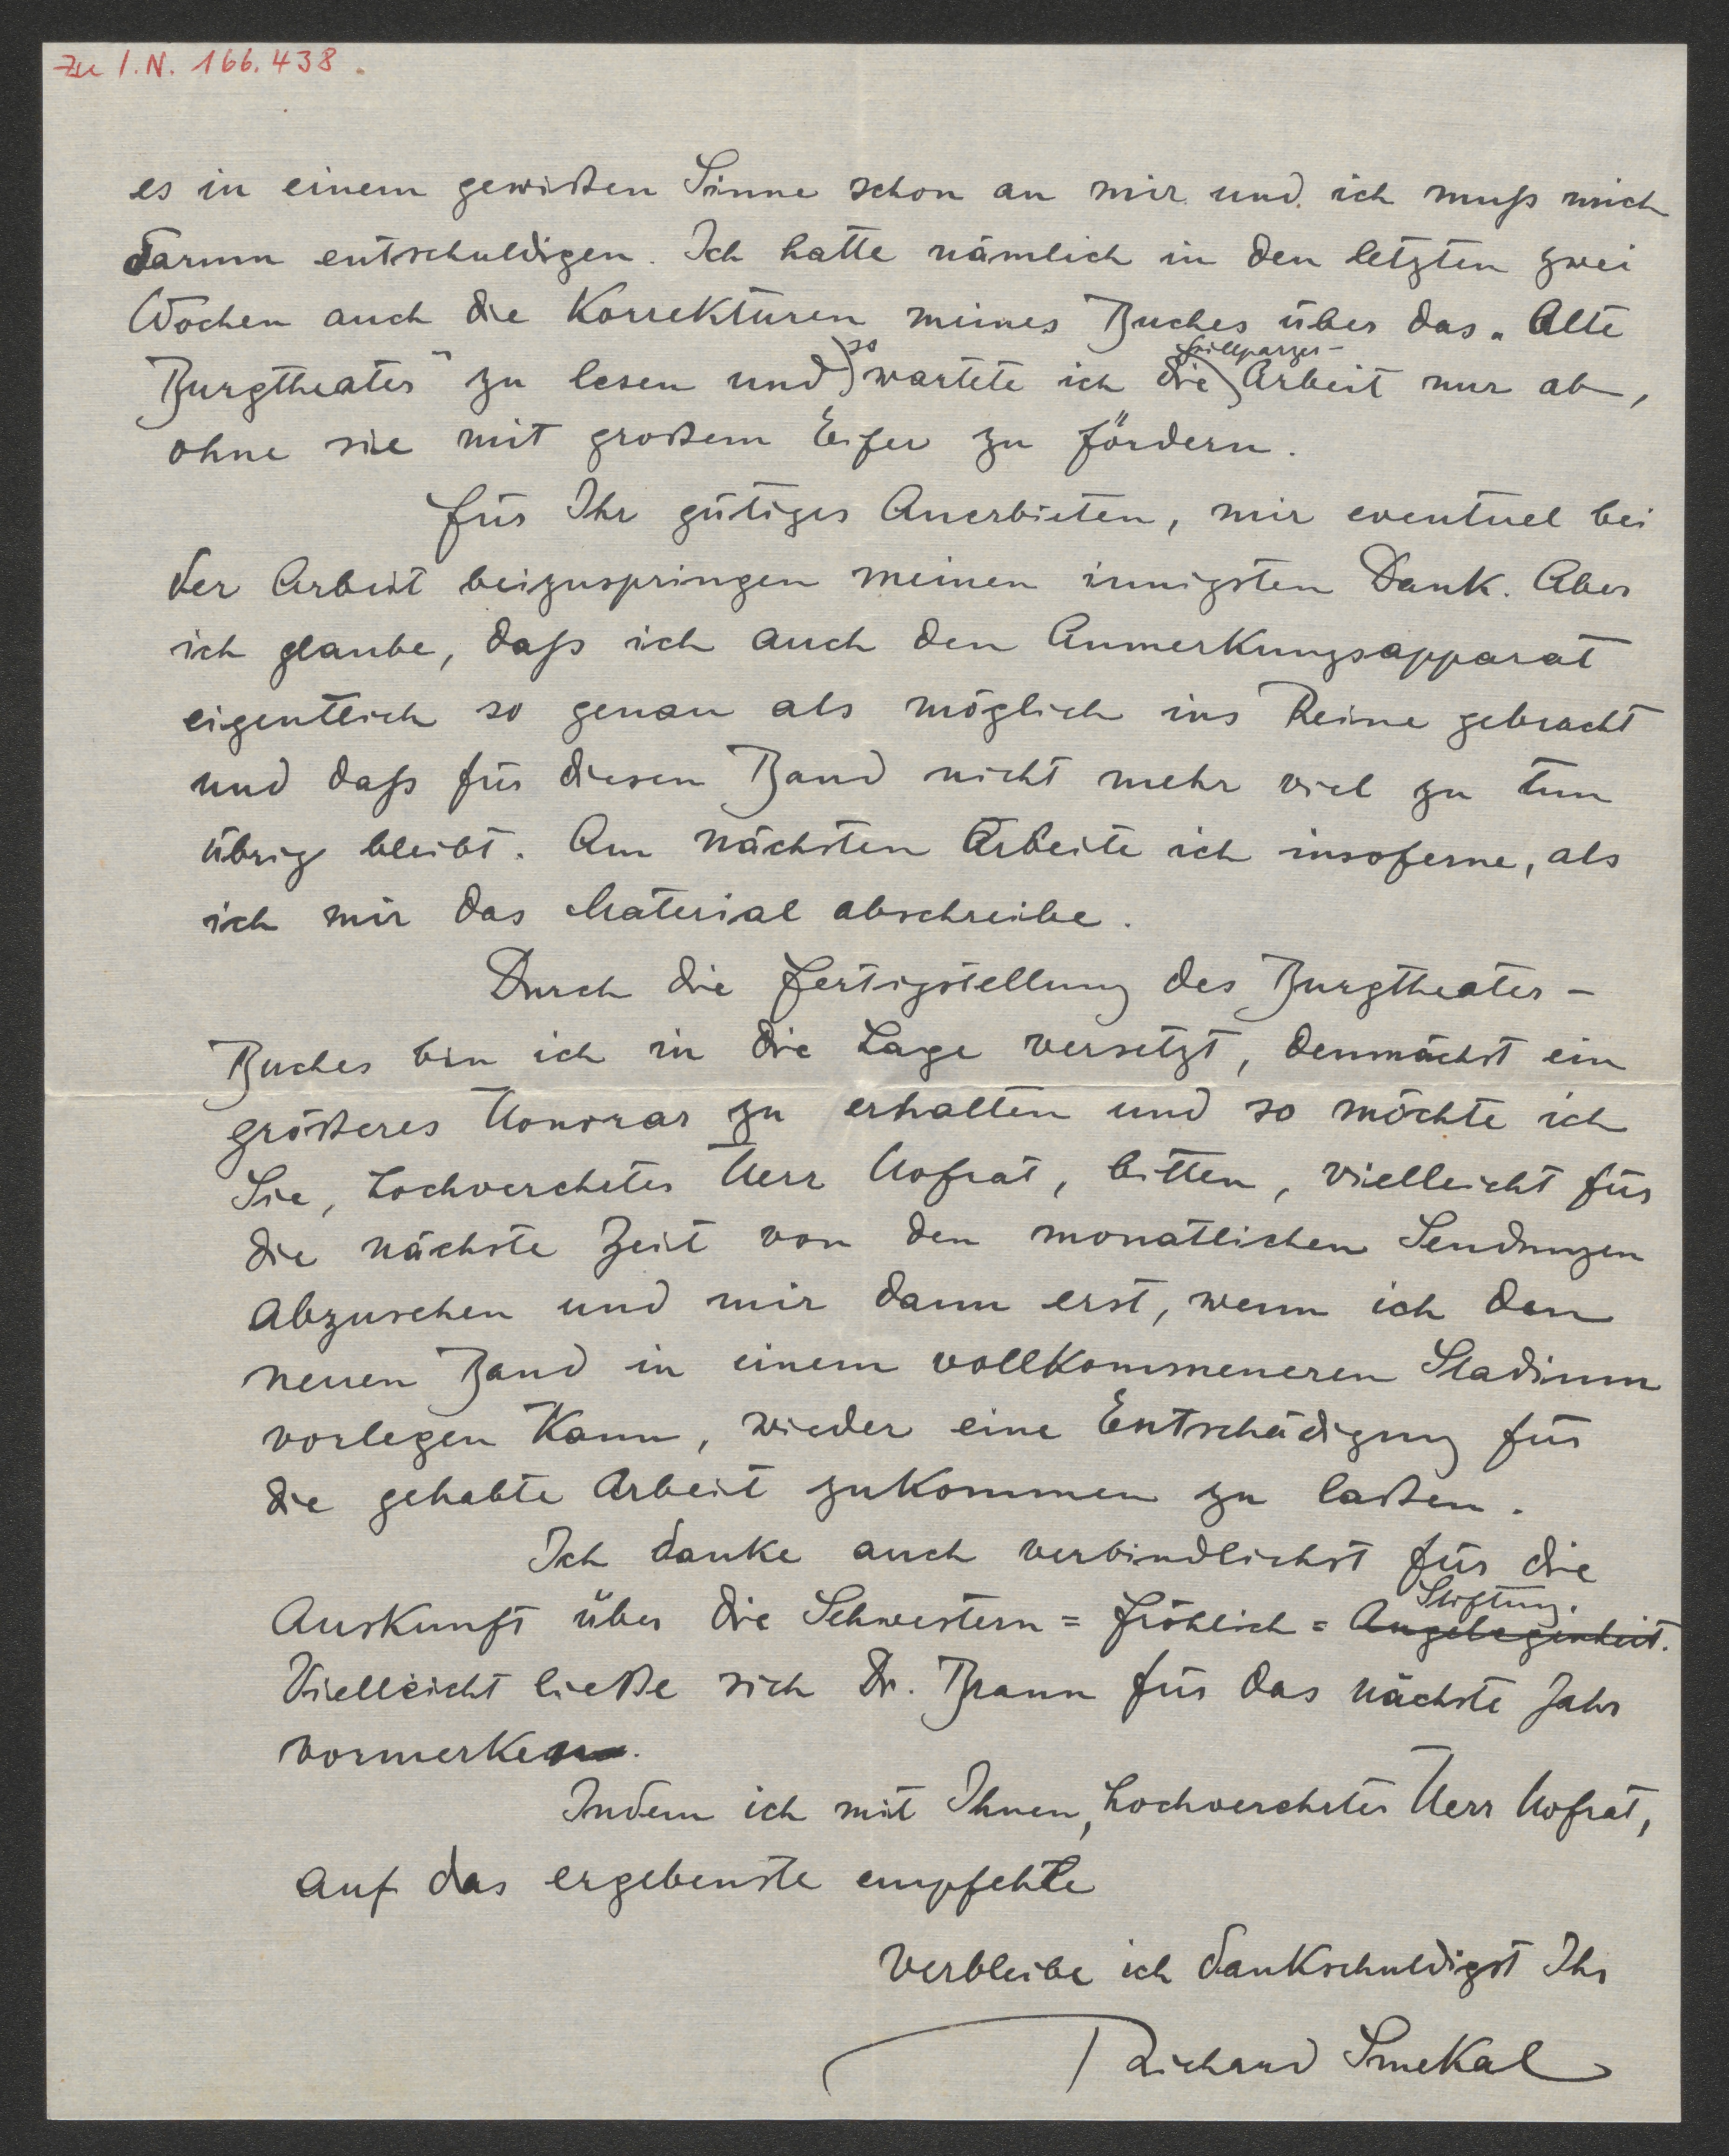 Zu I.N. 166.438.
es in einem gewißen Sinne schon an mir und ich muß mich
darum entschuldigen. Ich hatte nämlich in den letzten zwei
Wochen auch die Korrekturen meines Buches über das „Alte
Burgtheater" zu lesen und so wartete ich die Grillparzer-Arbeit nur ab,
ohne sie mit großem Eifer zu fördern.
Für Ihr gütiges Anerbieten, mir eventuel bei
der Arbeit beizuspringen meinen innigsten Dank. Aber
ich glaube, daß ich auch den Anmerkungsapparat
eigentlich so genau als möglich ins Reine gebracht
und daß für diesen Band nicht mehr viel zu tun
übrig bleibt. Am nächsten Arbeite ich insoferne, als
ich mir das Material abschreibe.
Durch die Fertigstellung des Burgtheater-
Buches bin ich in die Lage versetzt, demnächst ein
größeres Honorar zu erhalten und so möchte ich
Sie, hochverehrter Herr Hofrat, bitten, vielleicht für
die nächste Zeit von den monatlichen Sendungen
abzusehen und mir dann erst, wenn ich den
neuen Band in einem vollkommeneren Stadium
vorlegen kann, wieder eine Entschädigung für
die gehabte Arbeit zukommen zu laßen.
Ich danke auch verbindlichst für die
Auskunft über die Schwestern=Fröhlich=Angelegenheit. Stiftung.
Vielleicht ließe sich Dr. Braun für das nächste Jahr
vormerken.
Indem ich mit Ihnen, hochverehrter Herr Hofrat,
auf das ergebenste empfehle
verbleibe ich dankschuldigst Ihr
Richard Smekal